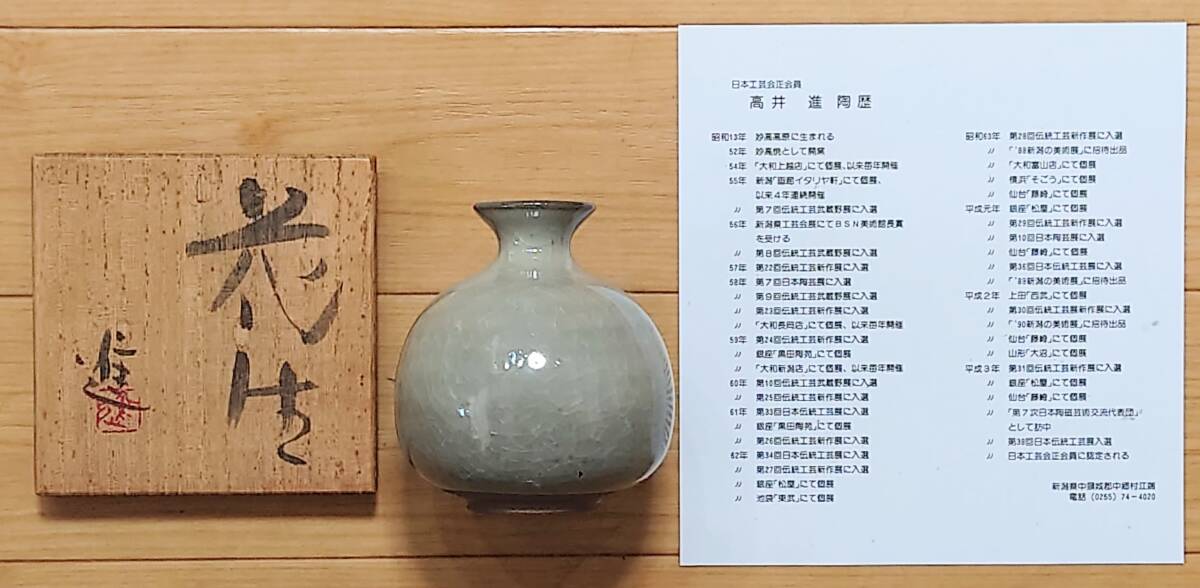 花生
進
日本工芸会正会員
高井 進 陶歴
昭和13年 妙高高原に生まれる
52年 妙高焼として開窯
54年 「大和上越店」にて個展、以来毎年開催
55年 新潟「画廊イタリヤ軒」にて個展、
以来4年連続開催
〃 第7回伝統工芸武蔵野展に入選
56年 新潟県工芸会展にてBSN美術館長賞
を受ける
〃 第8回伝統工芸武蔵野展に入選
57年 第22回伝統工芸新作展に入選
58年 第7回日本陶芸展に入選
〃 第9回伝統工芸武蔵野展に入選
〃 第23回伝統工芸新作展に入選
〃 「大和長岡店」にて個展、以来毎年開催
59年 第24回伝統工芸新作展に入選
〃 銀座「黒田陶苑」にて個展
〃 「大和新潟店」にて個展、以来毎年開催
60年 第10回伝統工芸武蔵野展に入選
〃 第25回伝統工芸新作展に入選
61年 第33回日本伝統工芸展に入選
〃 銀座「黒田陶苑」にて個展
〃 第26回伝統工芸新作展に入選
62年 第34回日本伝統工芸展に入選
〃 第27回伝統工芸新作展に入選
〃 銀座「松屋」にて個展
〃 池袋「東武」にて個展
昭和63年 第28回伝統工芸新作展に入選
〃 「'88新潟の美術展」に招待出品
〃 「大和富山店」にて個展
〃 横浜「そごう」にて個展
〃 仙台「藤崎」にて個展
平成元年 銀座「松屋」にて個展
〃 第29回伝統工芸新作展に入選
〃 第10回日本陶芸展に入選
〃 仙台「藤崎」にて個展
〃 第36回日本伝統工芸展に入選
〃 「'89新潟の美術展」に招待出品
平成2年 上田「西武」にて個展
〃 第30回伝統工芸展新作展に入選
〃 「'90新潟の美術展」に招待出品
〃 仙台「藤崎」にて個展
〃 山形「大沼」にて個展
平成3年 第31回伝統工芸新作展に入選
〃 銀座「松屋」にて個展
〃 仙台「藤崎」にて個展
〃 「第7次日本陶磁芸術交流代表団」
として訪中
〃 第38回日本伝統工芸展入選
〃 日本工芸会正会員に認定される
新潟県中頸城郡中郷村江端
電話 (0255) 74-4020